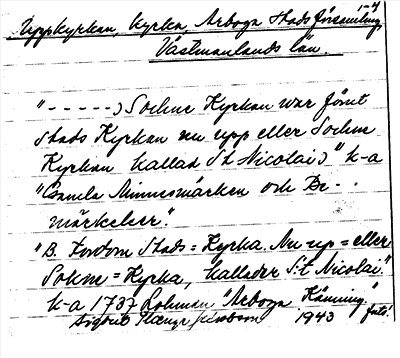 1-4
Uppkyrkan, kyrka, Arboga Stads församling,
Västmanlands län.
"-----) Sochne Kyrkan war förut
Stads Kyrkan nu upp eller Sochne
Kyrkan kallad S:t Nicolai)" k-a
"Gamla Minnesmärken och Be--
märkelser."
"B. Fordom Stads=Kyrka. Nu up=eller
Sokne=Kyrka, kallades S:t Nicolai."
k-a 1737 Lohman "Arboga Känning."
Sigurd 1943